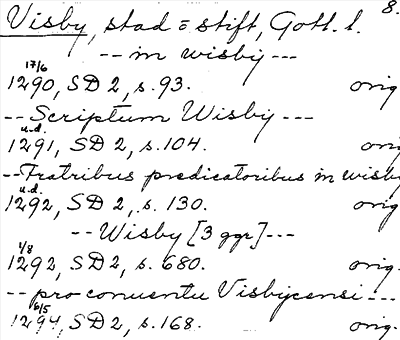 8.
Visby, stad = stift, Gotl. l.
-- in wisby ---
17/6
1290, SD 2, s. 93. orig
-- Scriptum Wisby ---
u.d.
1291, SD 2, s. 104. orig
-- Fratribus predicatoribus in wisby
u.d.
1292, SD 2, s. 130. orig
-- Wisby [3 ggr] ---
1/8
1292, SD 2, s. 680. orig.
-- pro conuentu Visbycensi ---
6/5
1294, SD 2, s. 168. orig.